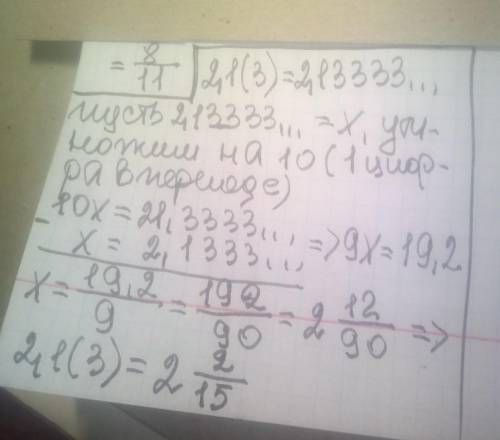 = 8/11
2,1(3)=2,13333...
пусть 2,13333... = x, ум-
ножим на 10 (1 циф-
ра в периоде)
10x = 21,3333...
- x = 2,1333... => 9x = 19,2
x = 19,2/9 = 192/90 = 2 12/90 =>
2,1(3) = 2 2/15